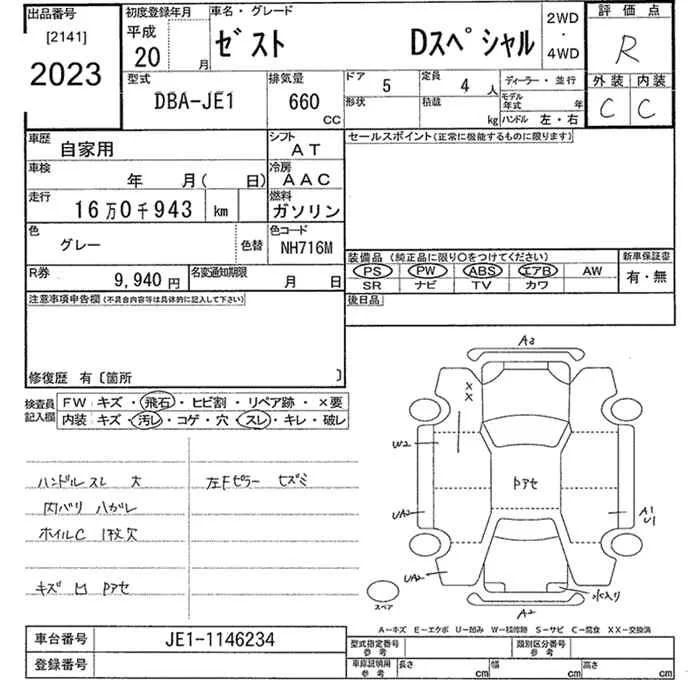 出品番号
[2141]
2023
初度登録年月
平成
20
月
車名・グレード
ゼスト Dスペシャル
2WD
・
4WD
評価点
R
型式
DBA-JE1
排気量
660
CC
ドア
5
定員
4 人
形状
積載
kg
ディーラー・並行
モデル年式 年
ハンドル 左・右
外装 内装
C C
車歴
自家用
シフト
AT
車検
年 月( 日)
冷房
AAC
走行
16万0千943 km
燃料
ガソリン
色
グレー
色替
色コード
NH716M
R券
9,940円
名変通知期限
月 日
セールスポイント(正常に機能するものに限ります)
装備品 (純正品に限り○をつけてください)
PS PW ABS エアB AW
SR ナビ TV カワ
新車保証書
有・無
後日品
注意事項申告欄(不具合内容等は具体的に記入して下さい)
修復歴 有〔箇所 〕
検査員
記入欄
FW キズ・飛石・ヒビ割・リペア跡・×要
内装 キズ・汚レ・コゲ・穴・スレ・キレ・破レ
ハンドルスレ 大
内バリ ハガレ
ホイルC 1枚欠
キズ 凹 Pアセ
左Fピラー セズミ
A3
××
W2
UA2
UA2
Pアセ
A1
U1
水入り
A2
スペア
A−キズ E−エクボ U−凹み W−補修跡 S−サビ C−腐食 XX−交換済
車台番号
JE1-1146234
登録番号
型式指定番号
参考
類別区分番号
参考
車庫証明用
参考
長さ cm
幅 cm
高さ cm